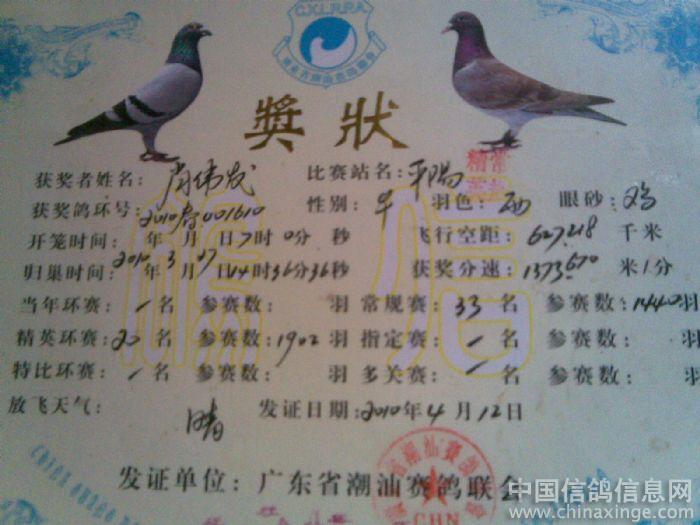 C.X.L.R.P.A
獎狀
精英 常规
获奖者姓名：肖伟发 比赛站名：平阳
获奖鸽环号：2010春001610 性别：羽色：眼砂：鸡
开笼时间：年 月 日7时0分 秒 飞行空距：627.218 千米
归巢时间：2010年3月17日14时36分36秒 获奖分速：1373.670 米1分
当年环赛：/名 参赛数：羽 常规赛：33名 参赛数：1440羽
精英环赛：20名 参赛数：1902羽 指定赛：/名 参赛数：羽
特比环赛：/名 参赛数：羽 多关赛：/名 参赛数：羽
放飞天气：晴 发证日期：2010年4月12日
发证单位：广东省潮汕赛鸽联合
中国信鸽信息网
www.chinaxinge.com